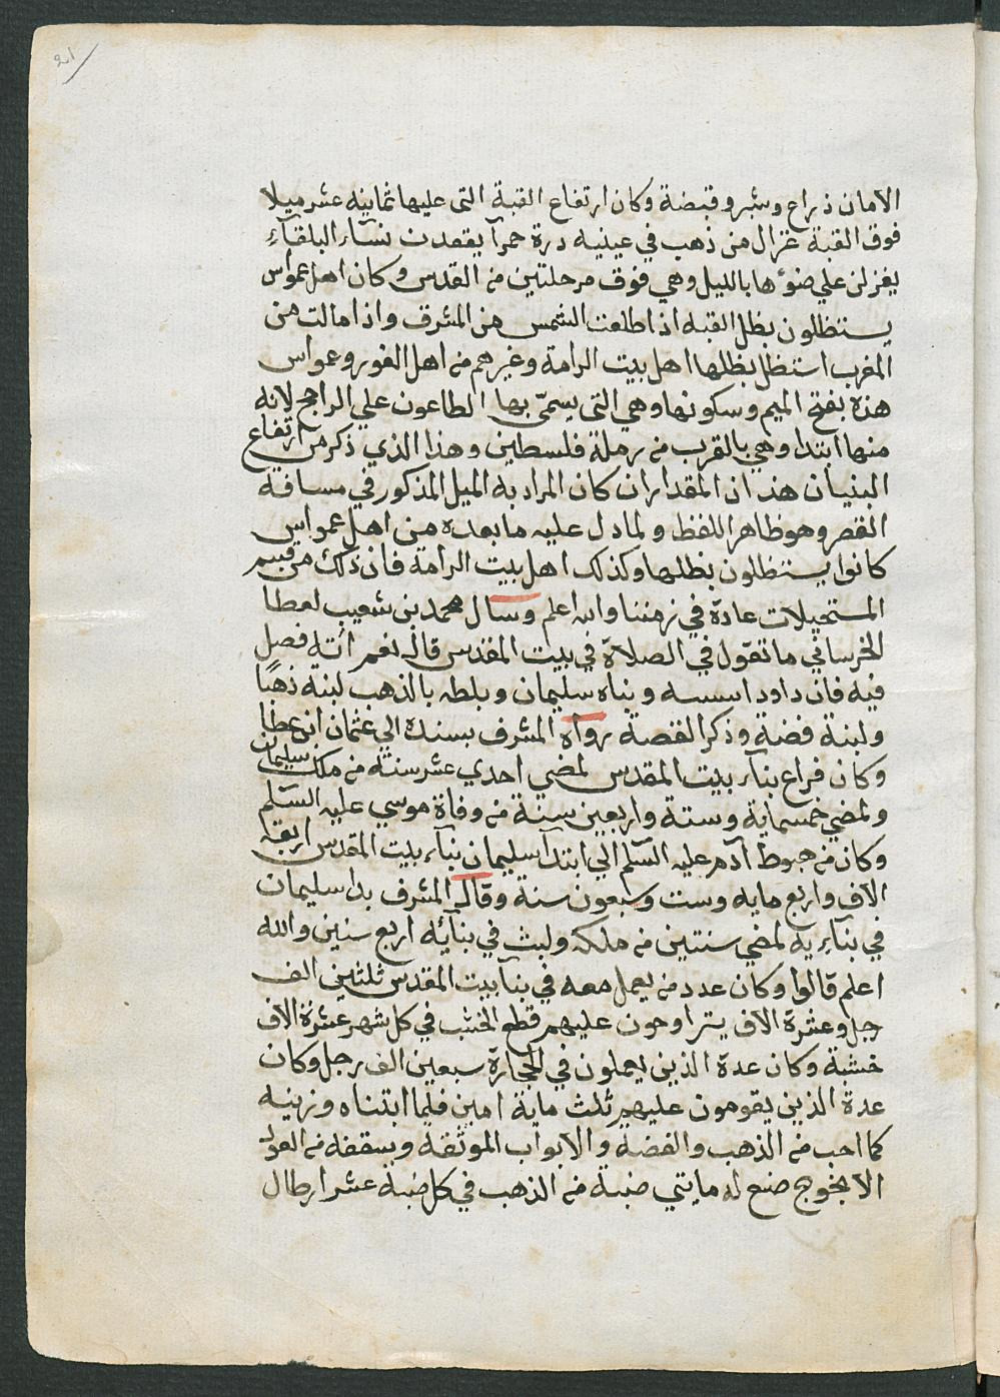 الامان ذراع وشبر وقبضة وكان ارتفاع القبة التى عليها ثمانية عشر ميلا
فوق القبة غزال من ذهب في عينيه درة حمرآ يقعدن نسآء البلقآء
يغزلن علي ضوءها بالليل وهي فوق مرحلتين من القدس وكان اهل عمواس
يستظلون بظل القبة اذا طلعت الشمس من المشرق واذا مالت من
المغرب استظل بظلها اهل بيت الرامة وغيرهم من اهل الغور وعمواس
هذه بفتح الميم وسكونها وهي التي يسمى بها الطاعون علي الراجح لانه
منها ابتدا وهي بالقرب من رملة فلسطين وهذا الذي ذكر من ارتفاع
البنيان هذان المقداران كان المراد به الميل المذكور في مسافة
القصر وهو ظاهر اللفظ ولما دل عليه ما بعده من اهل عمواس
كانوا يستظلون بظلها وكذلك اهل بيت الرامة فان ذلك من قسم
المستحيلات عادة في زمننا والله اعلم وسال محمد بن شعيب لعطا
الخرساني ما تقول في الصلاة في بيت المقدس قال نعم ائته فصل
فيه فان داود اسسه وبناه سليمان وبلطه بالذهب لبنة ذهبًا
ولبنة فضة وذكر القصة رواه المشرف بسنده الي عثمان ابن عطا
وكان فراغ بنآء بيت المقدس لمضي احدي عشر سنة من ملك سليمان
ولمضي خمسماية وستة واربعين سنة من وفاة موسي عليه السّلم
وكان من هبوط آدم عليه السّلم الي ابتدآ سليمان بنآء بيت المقدس اربعة
الاف واربع مايه وست وسبعون سنة وقال المشرف بدا سليمان
في بنآءيه لمضي سنتين من ملكه ولبث في بنآئه اربع سنين والله
اعلم قالوا وكان عدد من يعمل معه في بنآ بيت المقدس ثلثين الف
رجل وعشرة الاف يتراوحون عليهم قطع الخشب في كل شهر عشرة الاف
خشبة وكان عدة الذين يعملون في الحجارة سبعين الف رجل وكان
عدة الذين يقومون عليهم ثلث ماية امين فلما ابتناه وزينه
كما احب من الذهب والفضة والابواب الموثقة وسقفه من العود
الالخوج صنع له مايتي ضبة من الذهب في كل ضبة عشر ارطال